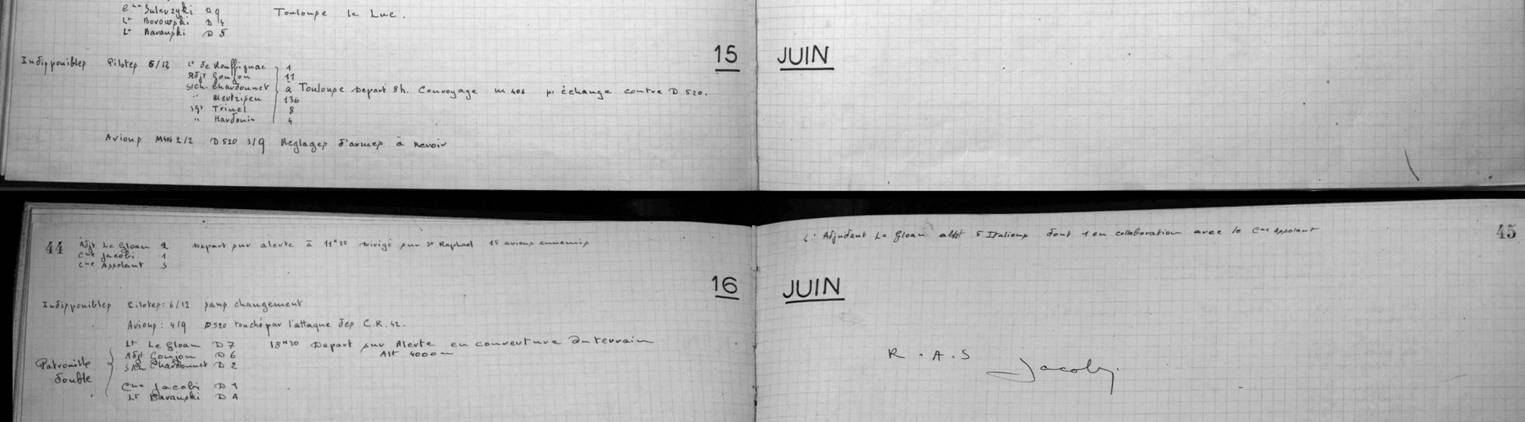 Toulouse le Luc.
Lt Borowski D 4
Lt Baranski D 5
15 JUIN
Indisponibles Pilotes 6/12 Lt de Rouffignac 1
Adjt Goujon 11
S/Ch. Chardonnet à Toulouse Depart 8h. Convoyage M 406 pr échange contre D 520.
" 136
Sgt 8
" Hardouin 4
Avions M406 2/2 D 520 3/9 Reglages d'armes à revoir
44 Adjt Le Gloan 2 Depart sur alerte à 11h35 dirigé sur St Raphael 15 avions ennemis
Cne Jacobi 1
Cne Assolant 5
L' Adjudant Le Gloan abat 5 Italiens dont 1 en collaboration avec le Cne Assolant 45
16 JUIN
Indisponibles Pilotes: 6/12 sans changement
Avions: 4/9 D520 touché par l'attaque des C.R. 42.
Lt Le Gloan D 7 18h20 Depart sur Alerte en couverture du terrain
Adjt Goujon D 6 Alt 4000 m
Patrouille double S/Ch Chardonnet D 2
Cne Jacobi D 1
Lt Baranski D 4
R.A.S Jacobi